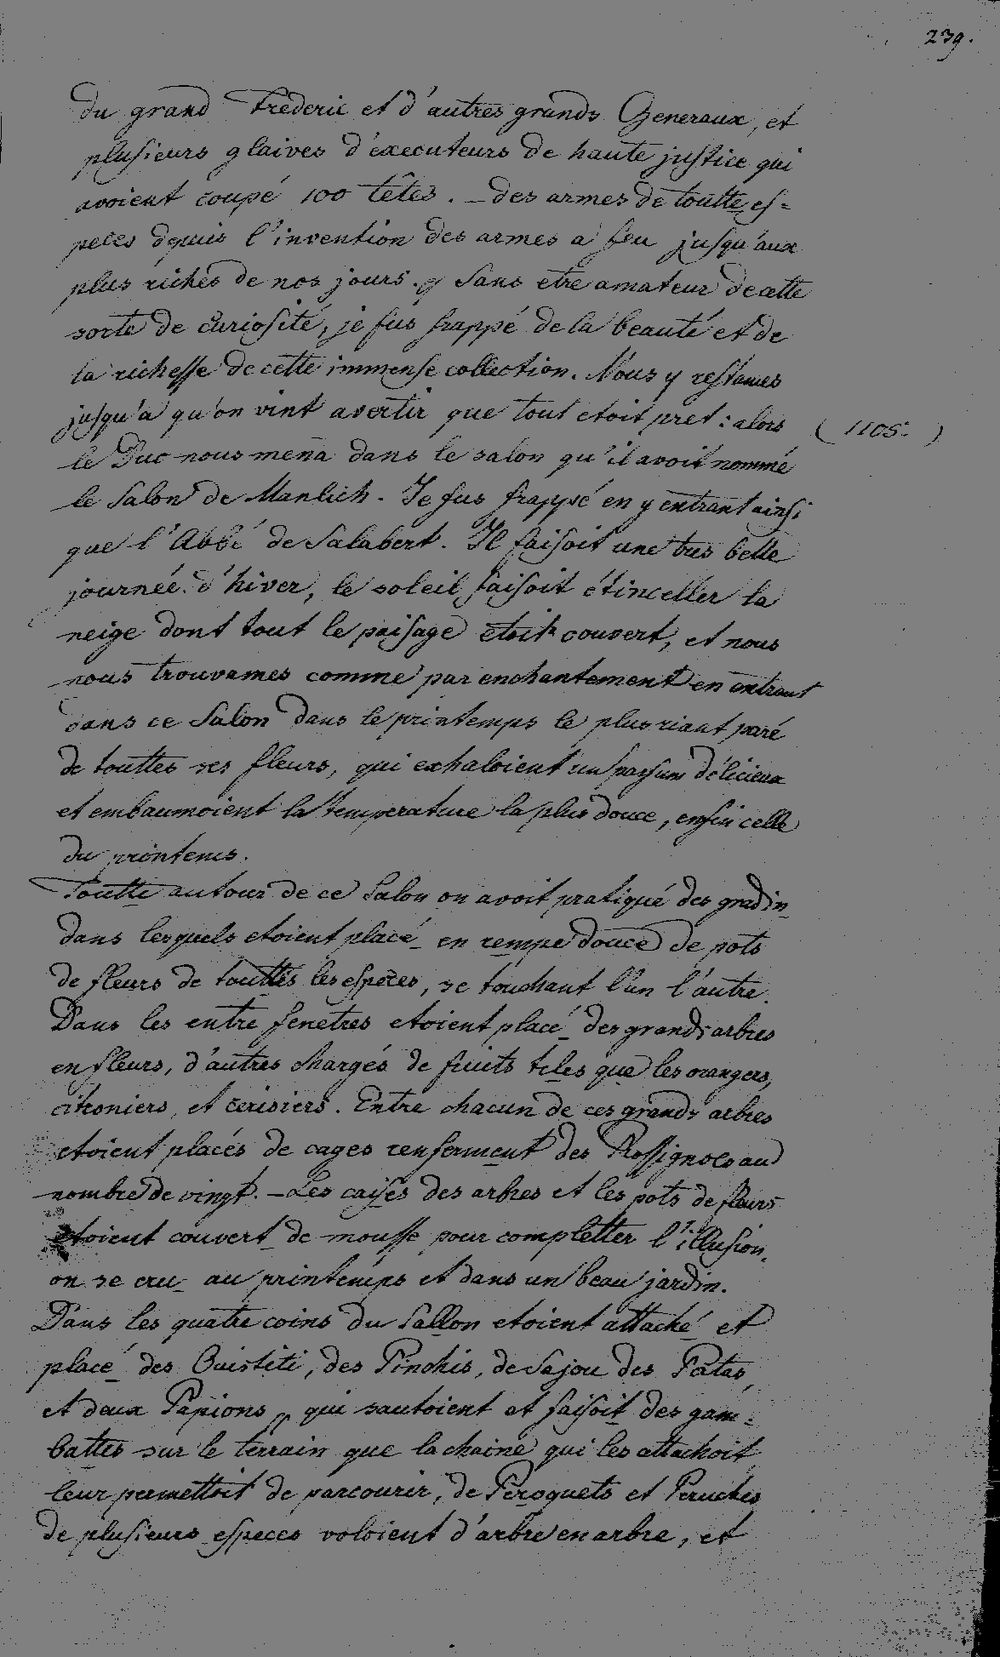 239.
du grand Frederic et d'autres grands Generaux, et
plusieurs glaives d'executeurs de haute justice qui
avoient coupé 100 têtes. _ des armes de toutte es=
peces depuis l'invention des armes a feu jusqu'aux
plus riches de nos jours. Sans etre amateur de cette
sorte de curiosité, je fus frappé de la beauté et de
la richesse de cette immense collection. Nous y restames
jusqu'a qu'on vint avertir que tout etoit pret: alors
(1105.)
le Duc nous mena dans le salon qu'il avoit nommé
le Salon de Manlich. Je fus frappé en y entrant ainsi
que l'Abbé de Salabert. Il faisoit une tres belle
journée d'hiver, le soleil faisoit étinceller la
neige dont tout le paisage etoit couvert, et nous
nous trouvames comme par enchantement en entrant
dans ce Salon dans le printemps le plus riant paré
de touttes ses fleurs, qui exhaloient un parfum délicieux
et embaumoient la temperature la plus douce, enfin celle
du printems.
Toutte autour de ce Salon on avoit pratiqué des gradin
dans lesquels etoient placé en rempe douce de pots
de fleurs de touttes les especes, se touchant l'un l'autre.
Dans les entre fenetres etoient placé des grands arbres
en fleurs, d'autres chargés de fruits teles que les orangers,
citroniers, et cerisiers. Entre chacun de ces grands arbres
etoient placés de cages renferment des Rossignols au
nombre de vingt. _ Les caises des arbres et les pots de fleurs
etoient couvert de mousse pour completter l'illusion.
on se cru au printemps et dans un beau jardin.
Dans les quatre coins du Sallon etoient attaché et
placé des Ouistiti, des Pinchis, de Sajou des Patas,
et deux Papions, qui sautoient et faisoit des gam=
battes sur le terrain que la chaine qui les attachoit
leur permettoit de parcourir, de Peroquets et Peruches
de plusieurs especes voloient d'arbre en arbre, et